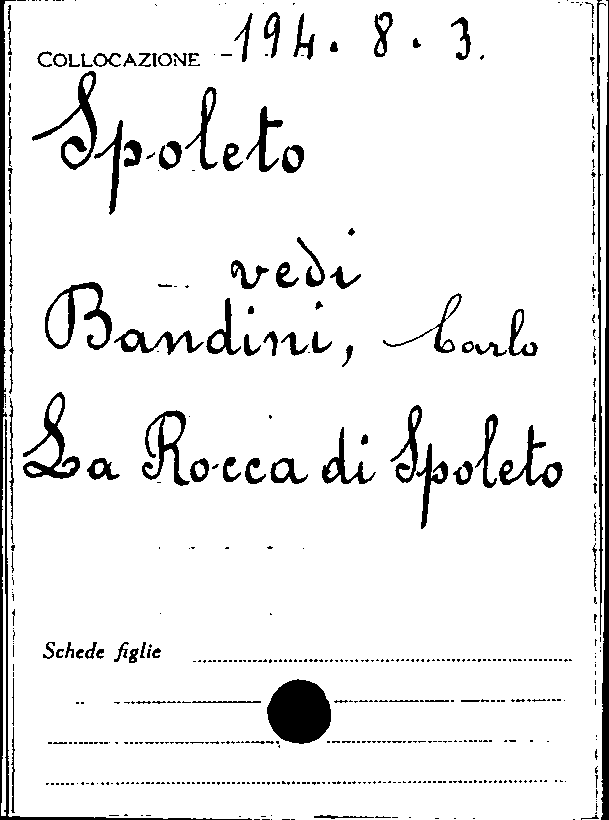 COLLOCAZIONE 194. 8. 3.
Spoleto
vedi
Bandini, Carlo
La Rocca di Spoleto
Schede figlie